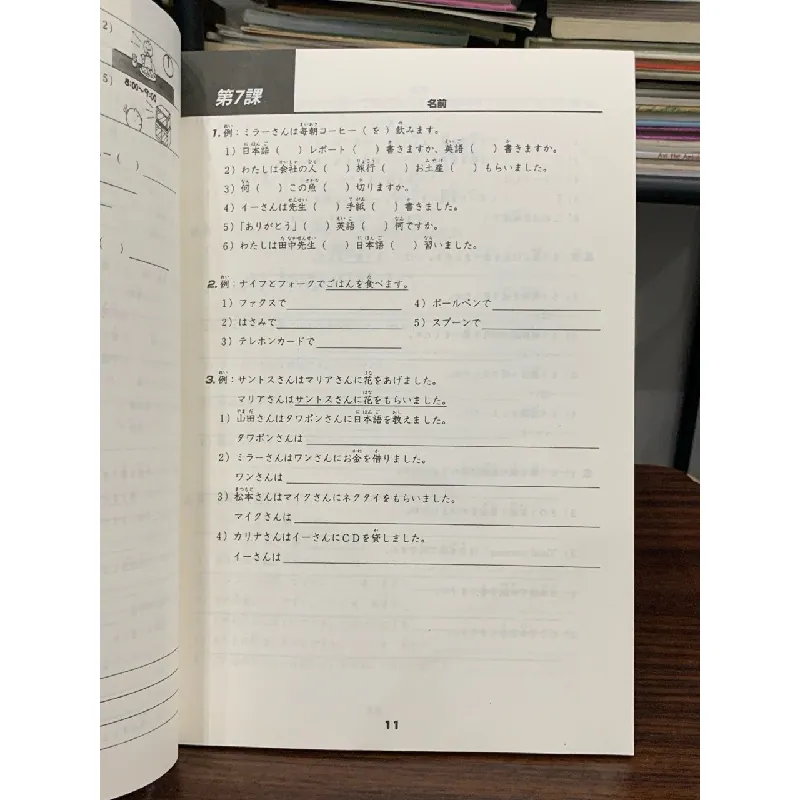 2)
5)
8:00~9:00
( )
( )
第7課
名前
1. 例：ミラーさんは毎朝コーヒー（ を ）飲みます。
1）日本語（ ）レポート（ ）書きますか、英語（ ）書きますか。
2）わたしは会社の人（ ）旅行（ ）お土産（ ）もらいました。
3）何（ ）この魚（ ）切りますか。
4）イーさんは先生（ ）手紙（ ）書きました。
5）「ありがとう」（ ）英語（ ）何ですか。
6）わたしは田中先生（ ）日本語（ ）習いました。
2. 例：ナイフとフォークでごはんを食べます。
1）ファクスで
4）ボールペンで
2）はさみで
5）スプーンで
3）テレホンカードで
3. 例：サントスさんはマリアさんに花をあげました。
マリアさんはサントスさんに花をもらいました。
1）山田さんはタワポンさんに日本語を教えました。
タワポンさんは
2）ミラーさんはワンさんにお金を借りました。
ワンさんは
3）松本さんはマイクさんにネクタイをもらいました。
マイクさんは
4）カリナさんはイーさんにCDを貸しました。
イーさんは
11